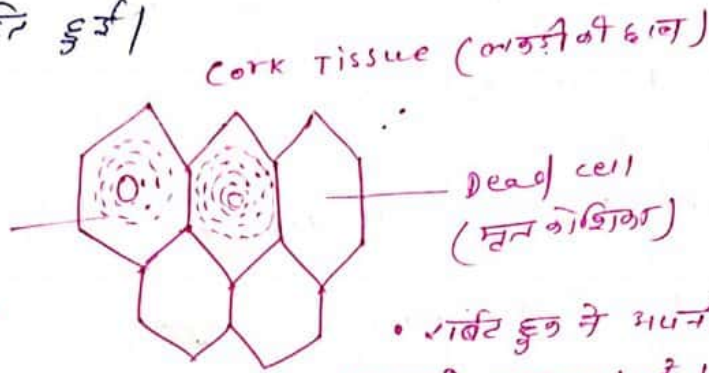 हुई।
Cork Tissue (लकड़ी की छाल)
Dead cell
(मृत कोशिका)
• रॉबर्ट हुक ने अपने